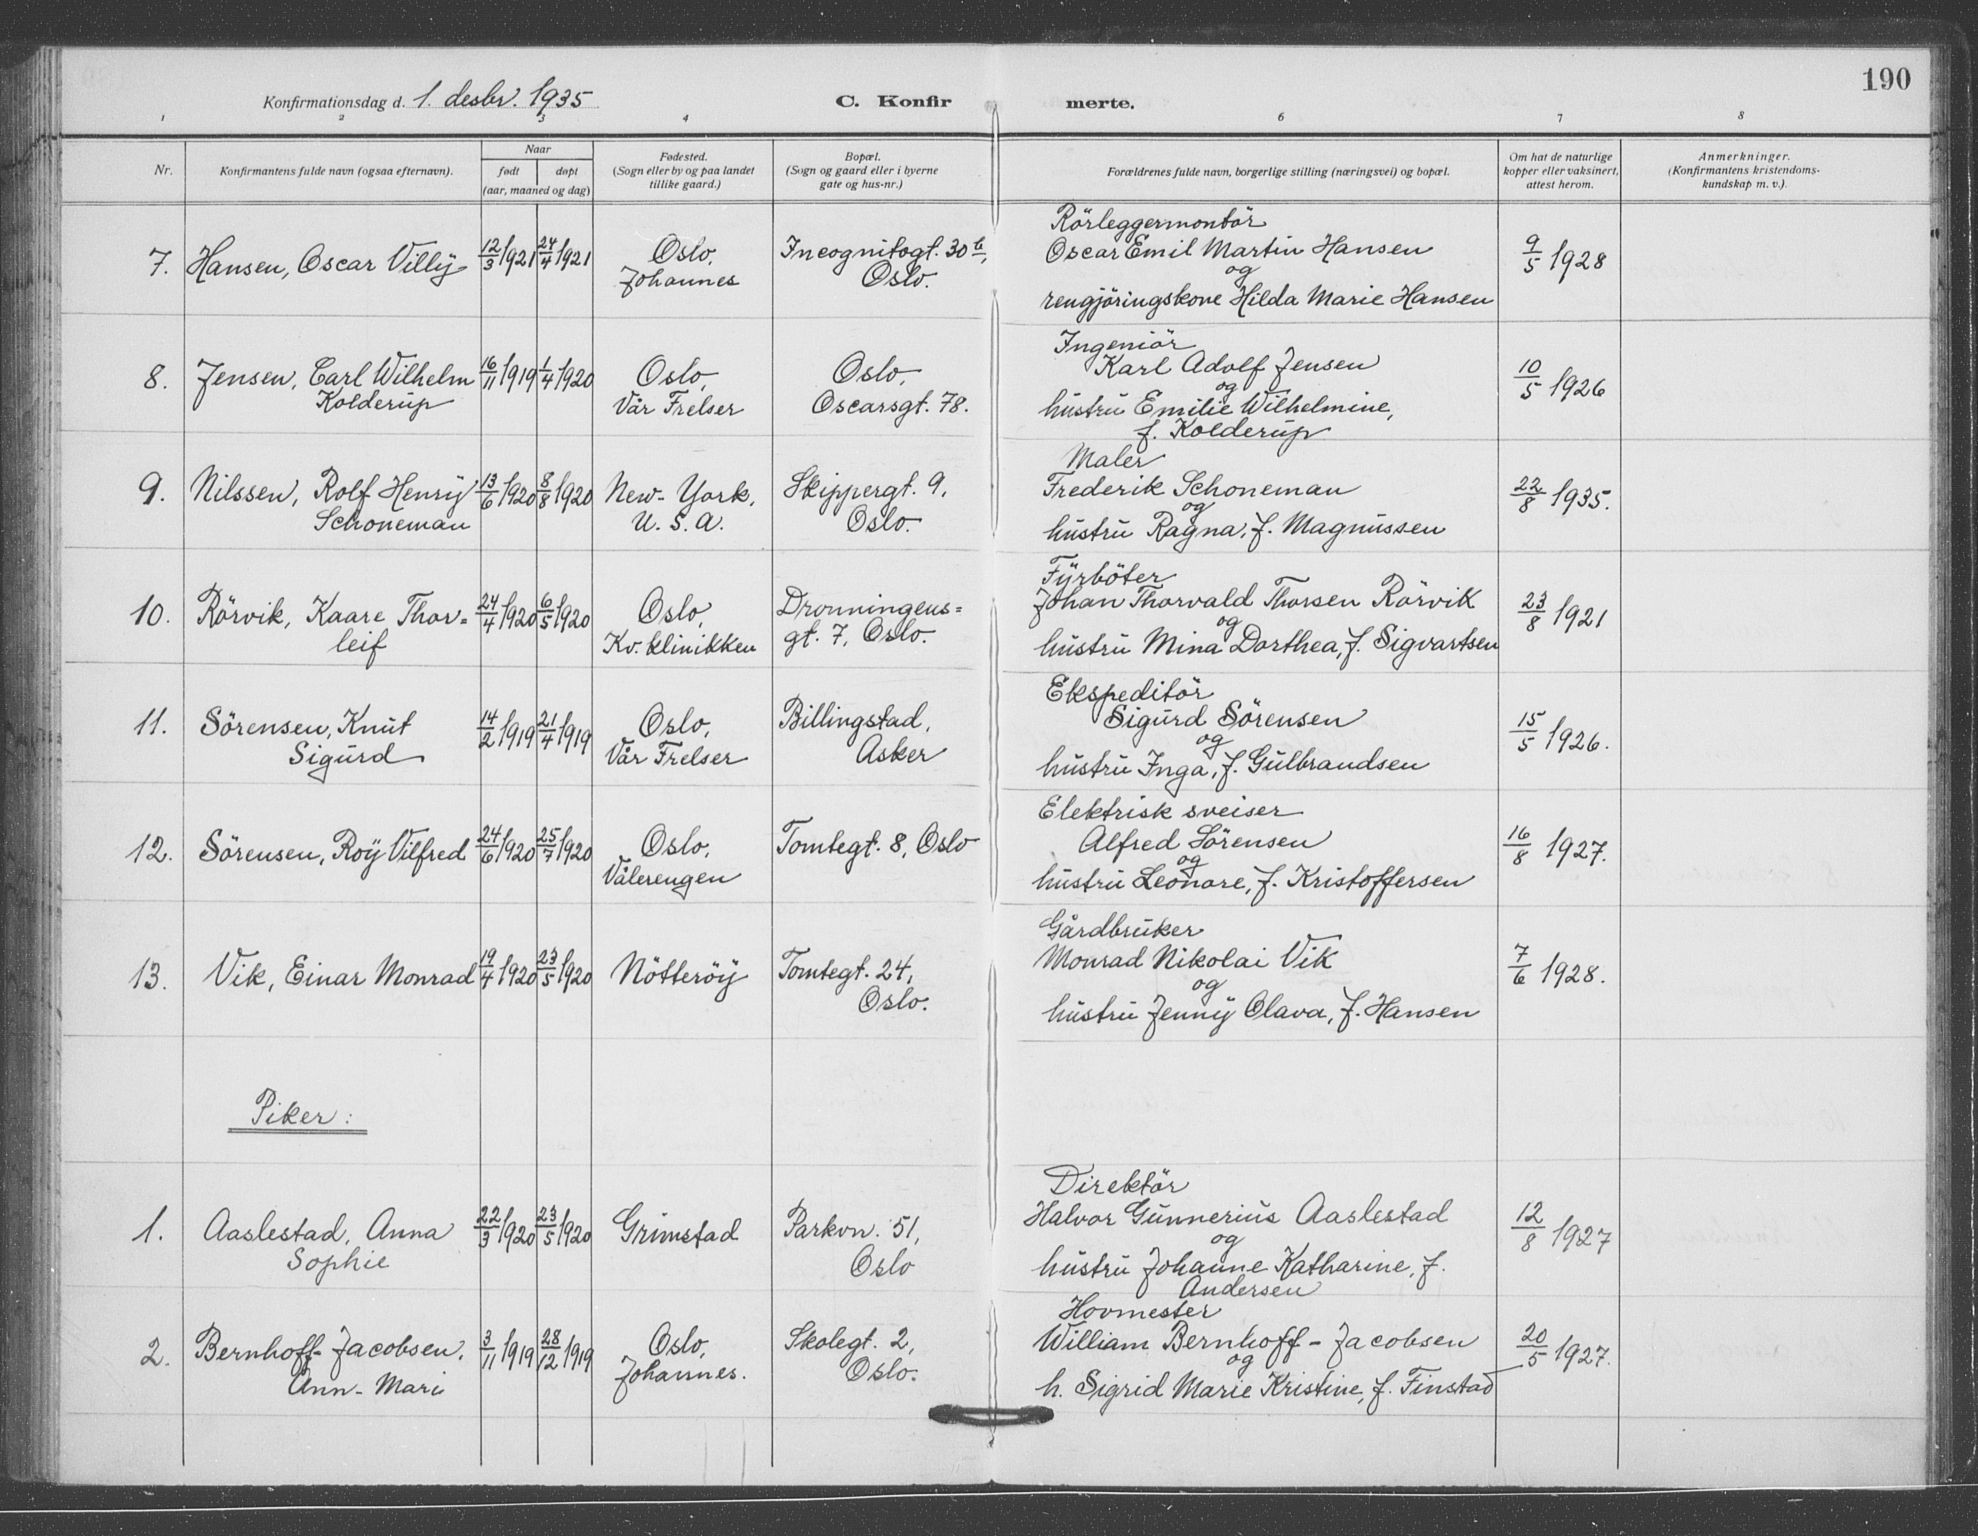 190
Konfirmationsdag d. 1. desbr. 1935
C. Konfirmerte.
1 2 3 4 6 7 8
Nr.
Konfirmantens fulde navn (ogsaa efternavn).
Naar
født døpt
(aar, maaned og dag)
Fødested.
(Sogn eller by og paa landet
tillike gaard.)
Bopæl.
(Sogn og gaard eller i byerne
gate og hus-nr.)
Forældrenes fulde navn, borgerlige stilling (næringsvei) og bopæl.
Om hat de naturlige
kopper eller vaksinert,
attest herom.
Anmerkninger.
(Konfirmantens kristendoms-
kundskap m. v.).
7. Hansen, Oscar Villÿ 12/3 1921 24/4 1921
Oslo,
Johannes
Incognitogt. 30 b,
Oslo.
Rörleggermontör
Oscar Emil Martin Hansen
og
rengjöringskone Hilda Marie Hansen
9/5 1928
8. Jensen, Carl Wilhelm
Kolderup
16/11 1919 1/4 1920
Oslo,
Vår Frelser
Oslo,
Oscarsgt. 78.
Ingeniör
Karl Adolf Jensen
og
hustru Emilie Wilhelmine,
f. Kolderup
10/5 1926
9. Nilssen, Rolf Henrÿ
Schoneman
13/6 1920 8/8 1920
New-York,
U. S. A.
Skippergt. 9,
Oslo.
Maler
Frederik Schoneman
og
hustru Ragna, f. Magnussen
22/8 1935.
10. Rörvik, Kaare Thor=
leif
24/4 1920 6/5 1920
Oslo,
Kv. klinikken
Dronningens=
gt. 7, Oslo.
Fÿrböter
Johan Thorvald Thorsen Rörvik
og
hustru Mina Dorthea, f. Sigvartsen
23/8 1921
11. Sörensen, Knut
Sigurd
14/2 1919 21/4 1919
Oslo,
Vår Frelser
Billingstad,
Asker
Ekspeditör
Sigurd Sörensen
og
hustru Inga, f. Gulbrandsen
15/5 1926.
12. Sörensen, Roÿ Vilfred 24/6 1920 25/7 1920
Oslo,
Vålerengen
Tomtegt. 8, Oslo
Elektrisk sveiser
Alfred Sörensen
og
hustru Leonore, f. Kristoffersen
16/8 1927.
13. Vik, Einar Monrad 19/4 1920 23/5 1920
Nötteröÿ
Tomtegt. 24,
Oslo.
Gårdbruker
Monrad Nikolai Vik
og
hustru Jennÿ Olava, f. Hansen
7/6 1928.
Piker:
1. Aaslestad, Anna
Sophie
22/3 1920 23/5 1920
Grimstad
Parkvn. 51,
Oslo
Direktör
Halvor Gunnerius Aaslestad
og
hustru Johanne Katharine, f.
Andersen
12/8 1927
2. Bernhoff-Jacobsen,
Ann-Mari
3/11 1919 28/12 1919
Oslo,
Johannes.
Skolegt. 2,
Oslo.
Hovmester
William Bernhoff-Jacobsen
og
h. Sigrid Marie Kristine, f. Finstad
20/5 1927.